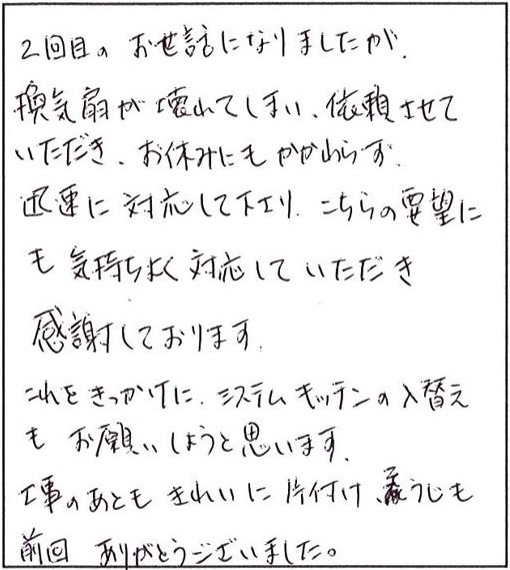 2回目の お世話になりましたが、
換気扇が壊れてしまい、依頼させて
いただき、お休みにもかかわらず、
迅速に対応して下さり、こちらの要望に
も気持ちよく対応していただき
感謝しております。
これをきっかけに、システムキッチンの入替え
も お願いしようと思います。
工事のあとも きれいに片付け、そうじも
前回 ありがとうございました。